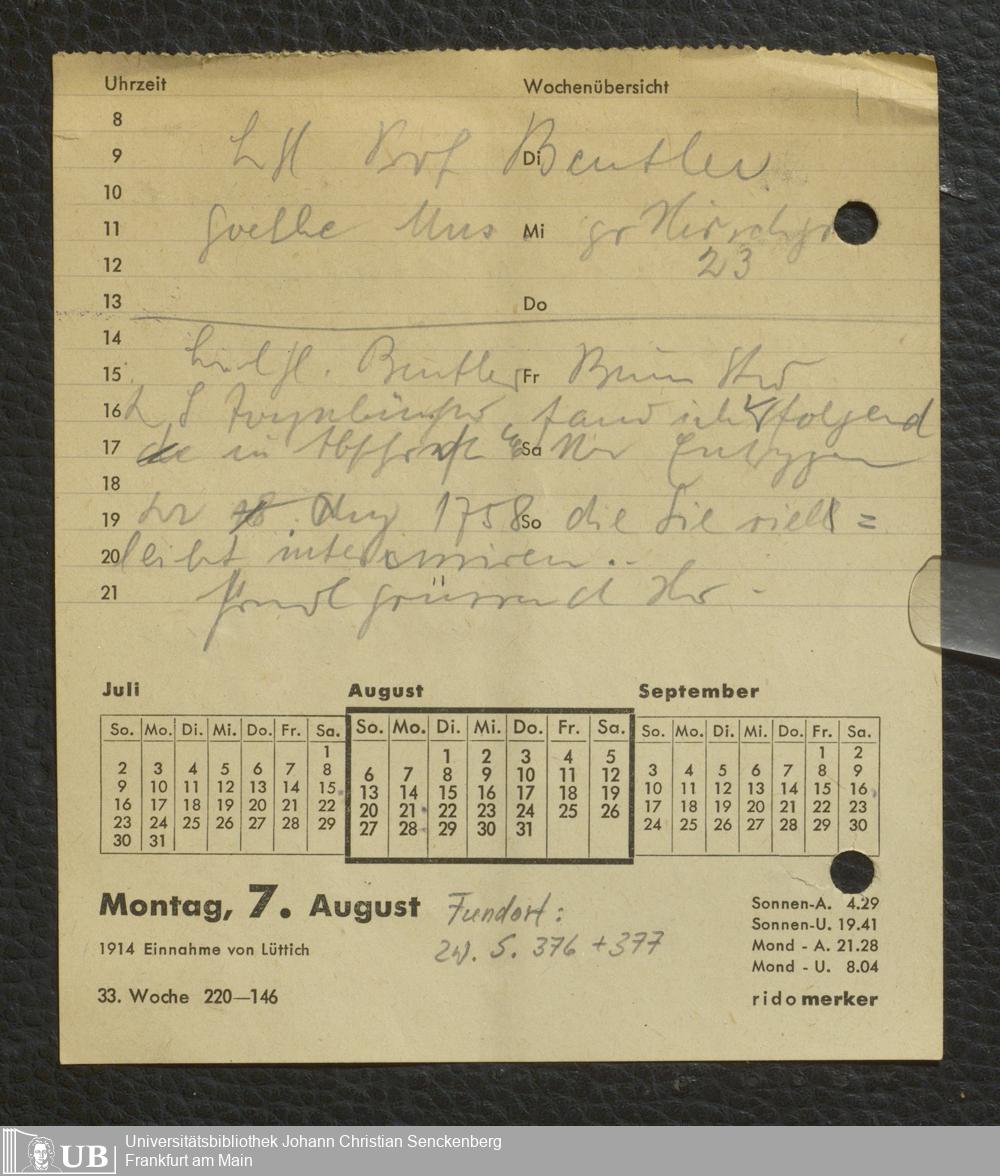 Uhrzeit Wochenübersicht
8
9 Prof Beutler Di
10
11 Goethe Mus. Mi gr Hirschgr
23
12
13 Do
14
15 Beutler Fr Beim
16 fand ich folgend
17 in Abschrift Sa
18
19 1758 So die Sie viell=
20 leicht interessieren..
21 grüssend Ihr -
Juli August September
So. Mo. Di. Mi. Do. Fr. Sa. So. Mo. Di. Mi. Do. Fr. Sa. So. Mo. Di. Mi. Do. Fr. Sa.
1 1 2 3 4 5 1 2
2 3 4 5 6 7 8 6 7 8 9 10 11 12 3 4 5 6 7 8 9
9 10 11 12 13 14 15 13 14 15 16 17 18 19 10 11 12 13 14 15 16
16 17 18 19 20 21 22 20 21 22 23 24 25 26 17 18 19 20 21 22 23
23 24 25 26 27 28 29 27 28 29 30 31 24 25 26 27 28 29 30
30 31
Montag, 7. August
Fundort:
zw. S. 376 + 377
1914 Einnahme von Lüttich
33. Woche 220—146
Sonnen-A. 4.29
Sonnen-U. 19.41
Mond - A. 21.28
Mond - U. 8.04
ridomerker
UB
Universitätsbibliothek Johann Christian Senckenberg
Frankfurt am Main